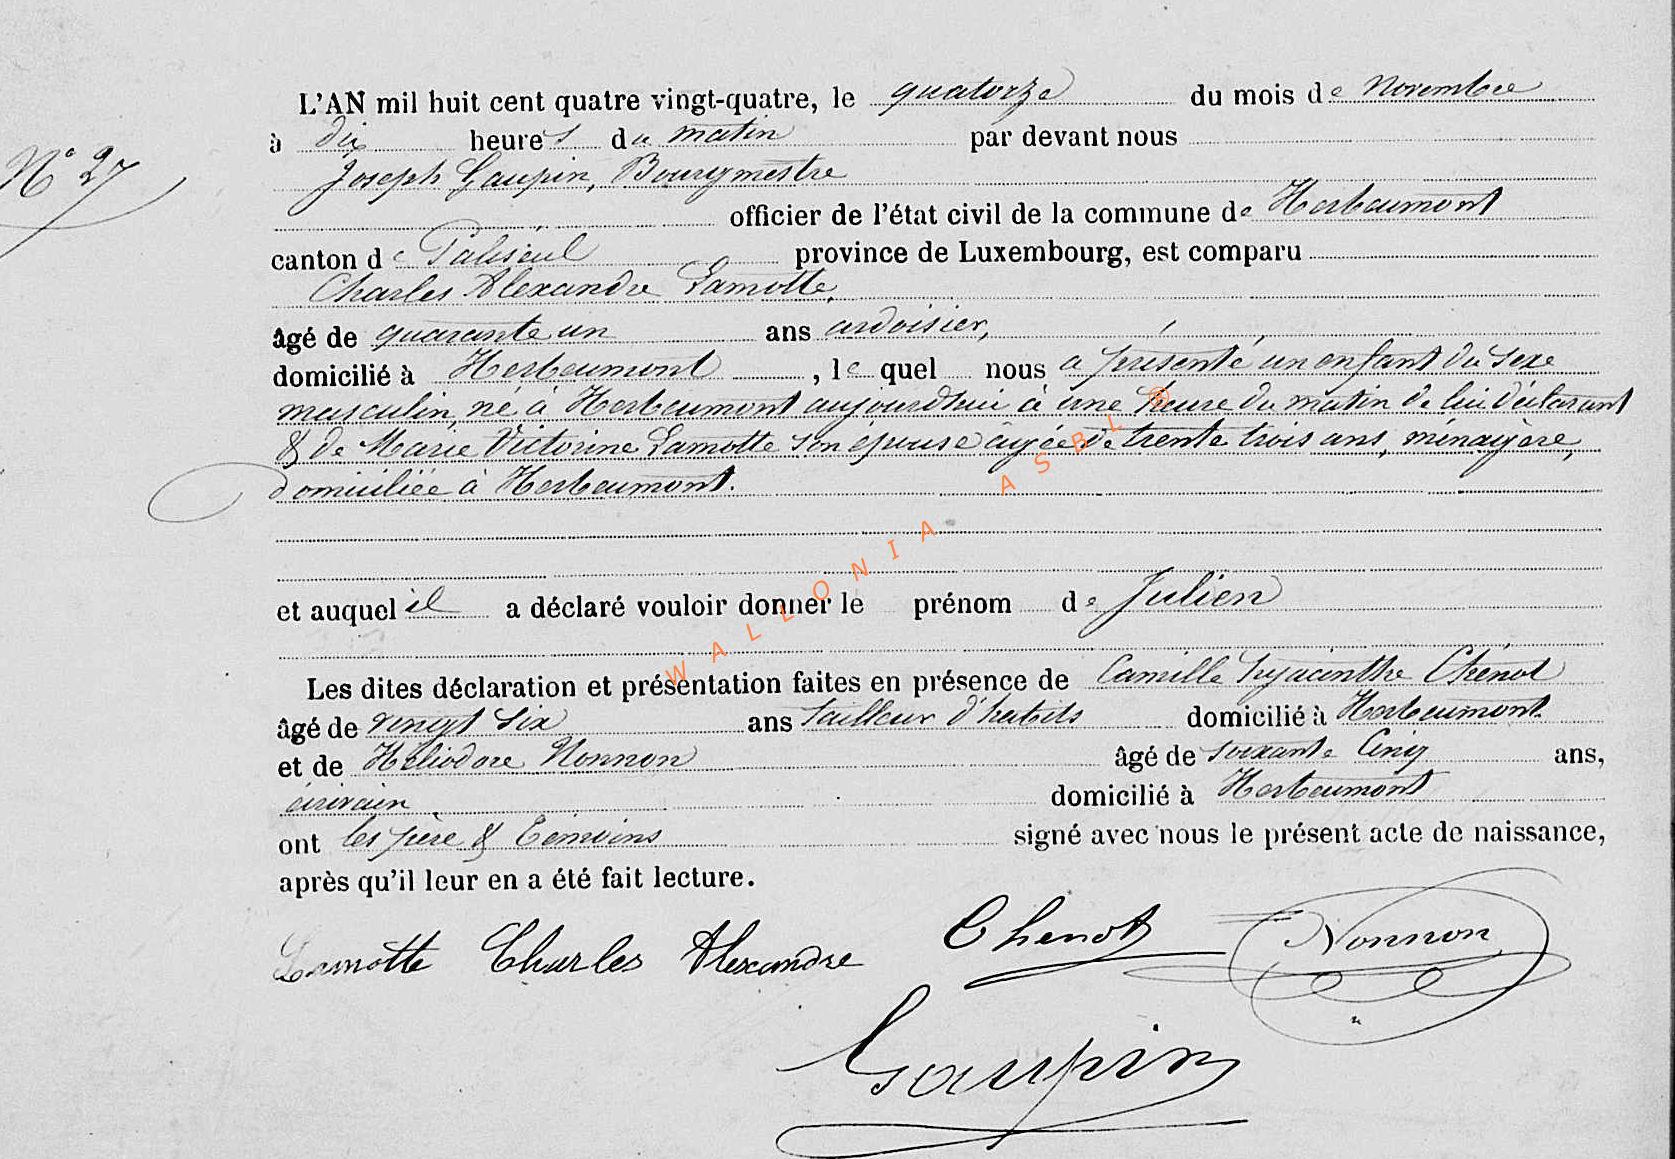 L'AN mil huit cent quatre vingt-quatre, le quatorze du mois de Novembre
à dix heures du matin par devant nous
N° 27
Joseph Gaupin, Bourgmestre
officier de l'état civil de la commune de Herbeumont
canton de Paliseul province de Luxembourg, est comparu
Charles Alexandre Lamotte,
âgé de quarante un ans ardoisier,
domicilié à Herbeumont, le quel nous a présenté un enfant du sexe
masculin, né à Herbeumont aujourdhui à une heure du matin de lui déclarant
& de Marie Victorine Lamotte son épouse âgée de trente trois ans, ménagère,
domiciliée à Herbeumont.
et auquel il a déclaré vouloir donner le prénom de Julien
Les dites déclaration et présentation faites en présence de Camille hyacinthe Chenot
âgé de vingt six ans tailleur d'habits domicilié à Herbeumont.
et de Héliodore Nonnon âgé de soixante Cinq ans,
écrivain domicilié à Herbeumont
ont les père & Témoins signé avec nous le présent acte de naissance,
après qu'il leur en a été fait lecture.
Lamotte Charles Alexandre Chenot Nonnon
Gaupin
WALLONIA ASBL ®